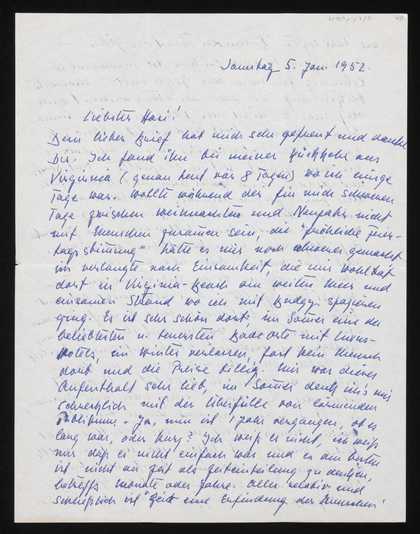 Samstag 5. Jan. 1952.
Liebster Hari!
Dein lieber Brief hat mich sehr gefreut und danke
Dir. Ich fand ihn bei meiner Rückkehr aus
Virginia (genau heut vor 8 Tagen) wo ich einige
Tage war. Wollte während der für mich schweren
Tage zwischen Weihnachten und Neujahr nicht
mit Menschen zusammen sein, die "fröhliche Feier-
tagsstimmung" hätte es mir noch schwerer gemacht
ich verlangte nach Einsamkeit, die mir wohl tat
dort in Virginia-Beach am weiten Meer und
einsamen Strand wo ich mit Budgy spazieren
ging. Es ist sehr schön dort, im Sommer eine der
beliebtesten u. teuersten Badeorte mit Luxus-
hotels, im Winter verlassen, fast kein Mensch
dort und die Preise billig. Mir war dieser
Aufenthalt sehr lieb, im Sommer denk ich's mir
schrecklich mit der Überfülle von lärmenden
Publikum. Ja, nun ist 1 Jahr vergangen, ob es
lang war, oder kurz? Ich weiß es nicht, ich weiß
nur daß es nicht einfach war und es am besten
ist nicht an Zeit als Zeiteinteilung zu denken,
betreffs Monate oder Jahre. Alles relativ und
schließlich ist "Zeit" eine Erfindung der Menschen